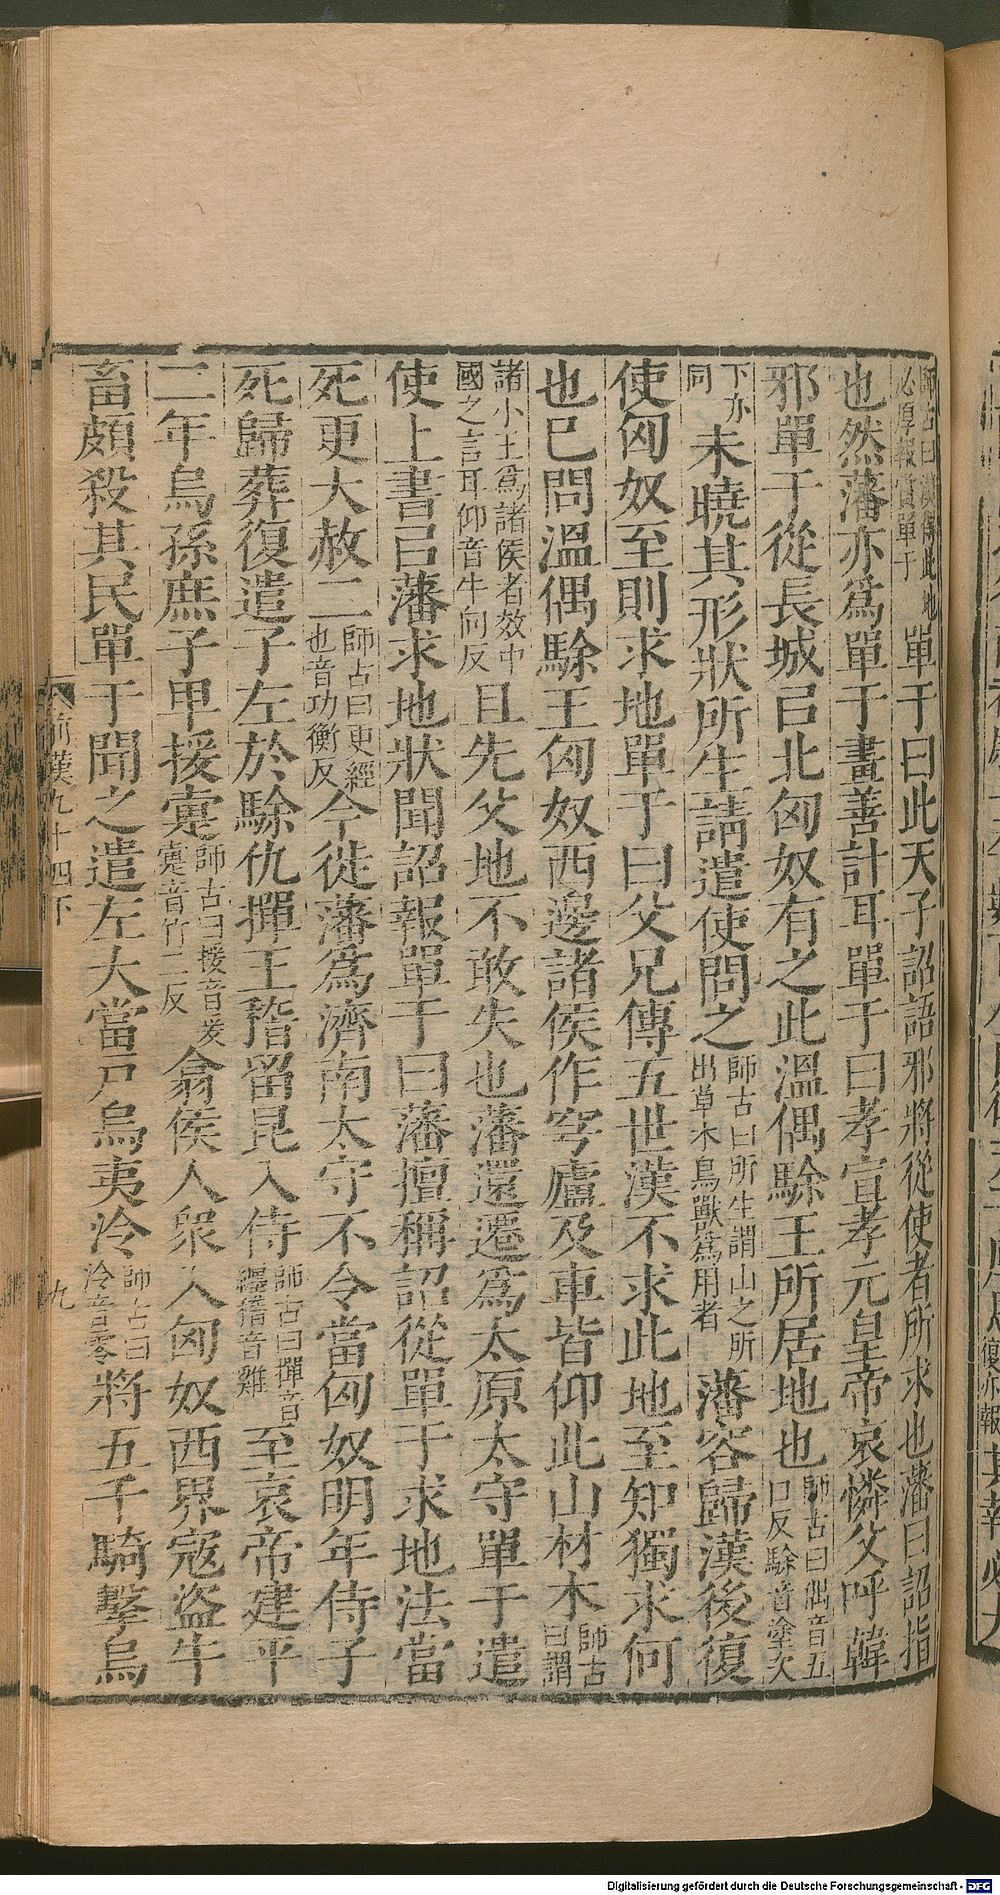 師古曰漢得此地必厚報賞單于單于曰此天子詔語邪將從使者所求也藩曰詔指
也然藩亦爲單于畫善計耳單于曰孝宣孝元皇帝哀憐父呼韓
邪單于從長城㠯北匈奴有之此溫偶駼王所居地也師古曰偶音五口反駼音塗次
下亦同未曉其形狀所生請遣使問之師古曰所生謂山之所出草木鳥獸爲用者藩容歸漢後復
使匈奴至則求地單于曰父兄傳五世漢不求此地至知獨求何
也已問溫偶駼王匈奴西邊諸侯作穹廬及車皆仰此山材木師古曰謂
諸小王爲諸侯者效中國之言耳仰音牛向反且先父地不敢失也藩還遷爲太原太守單于遣
使上書㠯藩求地狀聞詔報單于曰藩擅稱詔從單于求地法當
死更大赦二師古曰更經也音功衡反今徙藩爲濟南太守不令當匈奴明年侍子
死歸葬復遣子左於駼仇撣王稽留昆入侍師古曰撣音纏稽音雞至哀帝建平
二年烏孫庶子卑援疐師古曰援音爰疐音竹二反翕侯人衆入匈奴西界寇盜牛
畜頗殺其民單于聞之遣左大當戶烏夷泠師古曰泠音零將五千騎擊烏
前漢九十四下 九
Digitalisierung gefördert durch die Deutsche Forschungsgemeinschaft - DFG